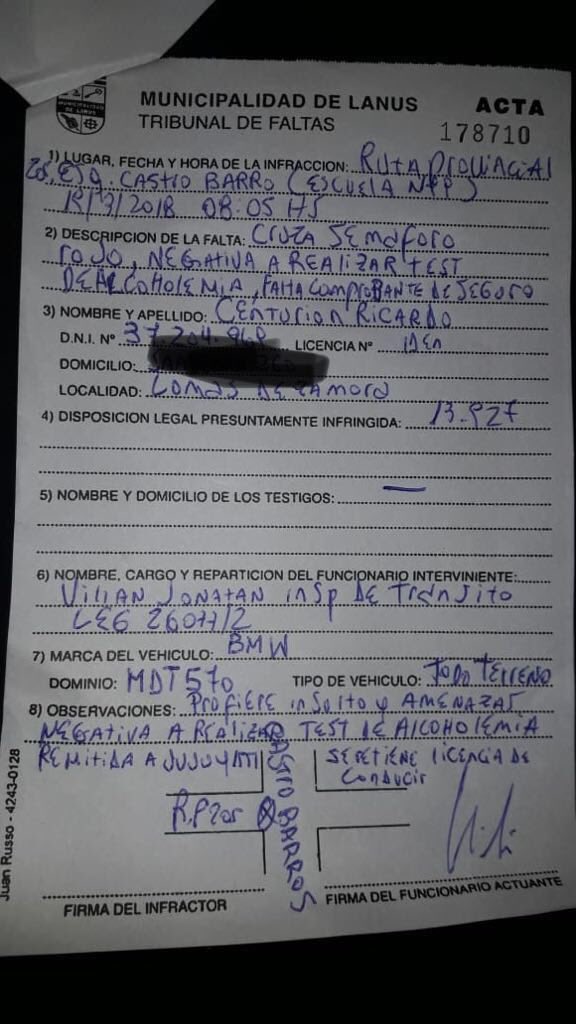 MUNICIPALIDAD DE LANUS
MUNICIPALIDAD DE LANUS ACTA
TRIBUNAL DE FALTAS 178710
1) LUGAR, FECHA Y HORA DE LA INFRACCION: RUTA PROVINCIAL
ESQ. CASTRO BARRO (ESCUELA
2018 08:05 HS
2) DESCRIPCION DE LA FALTA: CRUZA SEMAFORO
ROJO, NEGATIVA A REALIZAR TEST
DE ALCOHOLEMIA, FALTA COMPROBANTE DE SEGURO
3) NOMBRE Y APELLIDO: CENTURION RICARDO
D.N.I. Nº 37.204.968 LICENCIA Nº IDEM
DOMICILIO:
LOCALIDAD: LOMAS DE ZAMORA
4) DISPOSICION LEGAL PRESUNTAMENTE INFRINGIDA: 13.927
5) NOMBRE Y DOMICILIO DE LOS TESTIGOS: —
6) NOMBRE, CARGO Y REPARTICION DEL FUNCIONARIO INTERVINIENTE:
VILLAN JONATAN INSP DE TRANSITO
LEG 26077/2
7) MARCA DEL VEHICULO: BMW
DOMINIO: MDT 570 TIPO DE VEHICULO: TODO TERRENO
8) OBSERVACIONES: PROFIERE INSULTO Y AMENAZAS
NEGATIVA A REALIZAR TEST DE ALCOHOLEMIA
REMITIDA A JUJUY SE RETIENE LICENCIA DE
CONDUCIR
R.P 205
CASTRO BARROS
FIRMA DEL INFRACTOR FIRMA DEL FUNCIONARIO ACTUANTE
Juan Russo - 4243-0128